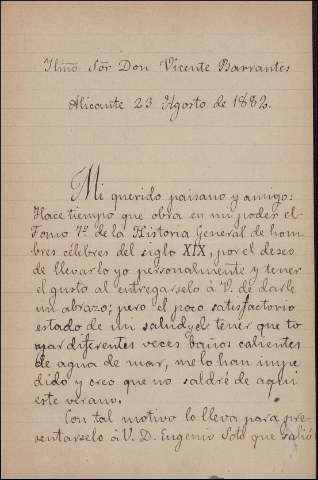 Ilmo Sor Don Vicente Barrantes
Alicante 23 Agosto de 1882.
Mi querido paisano y amigo:
Hace tiempo que obra en mi poder el
Tomo 7º de la Historia General de hom
bres célebres del siglo XIX, por el deseo
de llevarlo yo personalmente y tener
el gusto al entregarselo à V. de darle
un abrazo; pero el poco satisfactorio
estado de mi salud y el tener que to
mar diferentes veces baños calientes
de agua de mar, me lo han impe
dido y creo que no saldré de aqui
este verano.
Con tal motivo lo lleva para pre
sentarselo à V. D. Eugenio Soto que salió